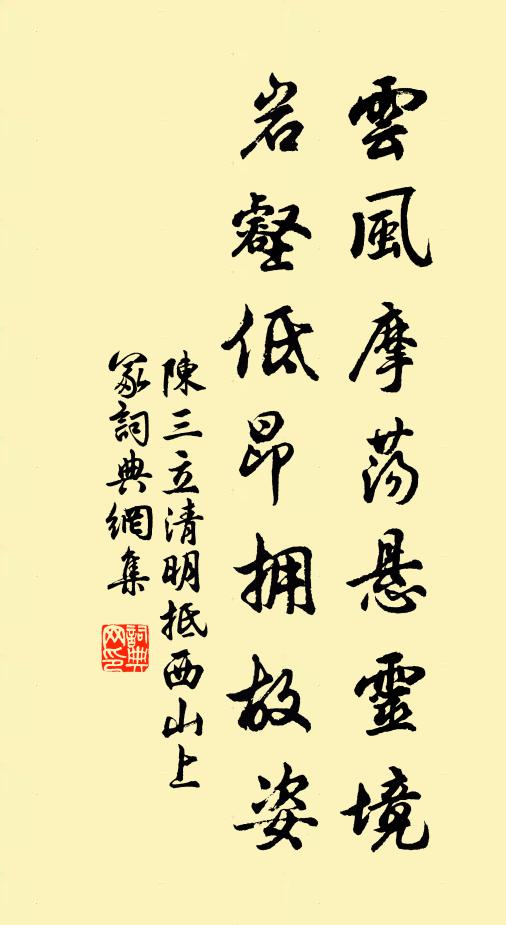 雲風摩蕩悬靈境
岩壑低昂拥故姿
陳三立清明抵西山上
冢詞典網集
詞典
网印